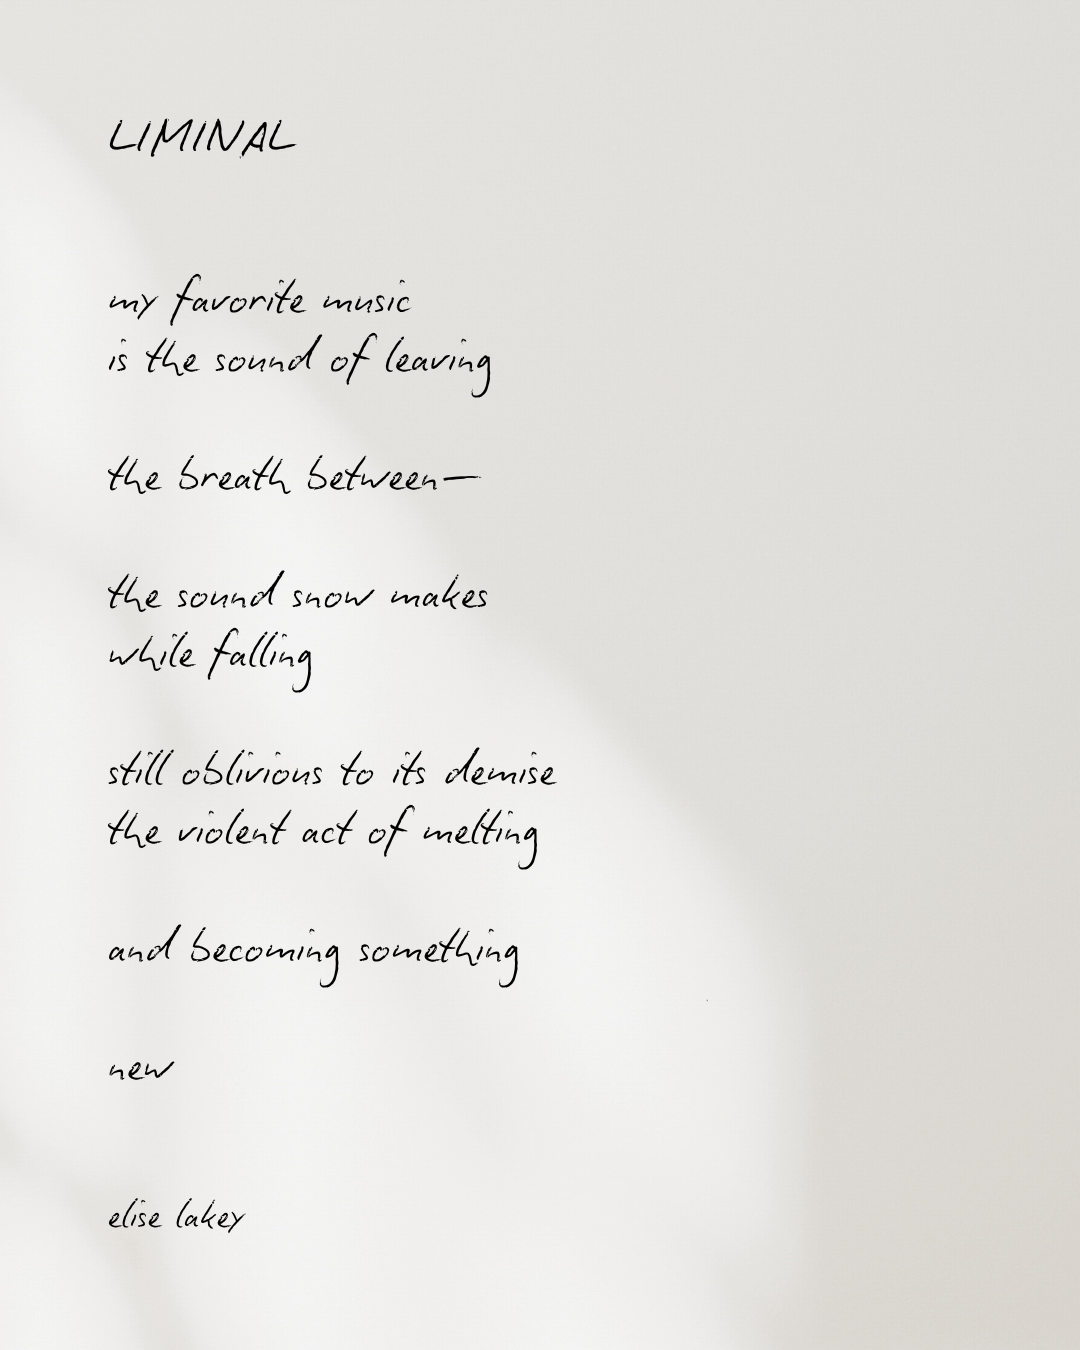 LIMINAL
my favorite music
is the sound of leaving
the breath between—
the sound snow makes
while falling
still oblivious to its demise
the violent act of melting
and becoming something
new
elise lakey